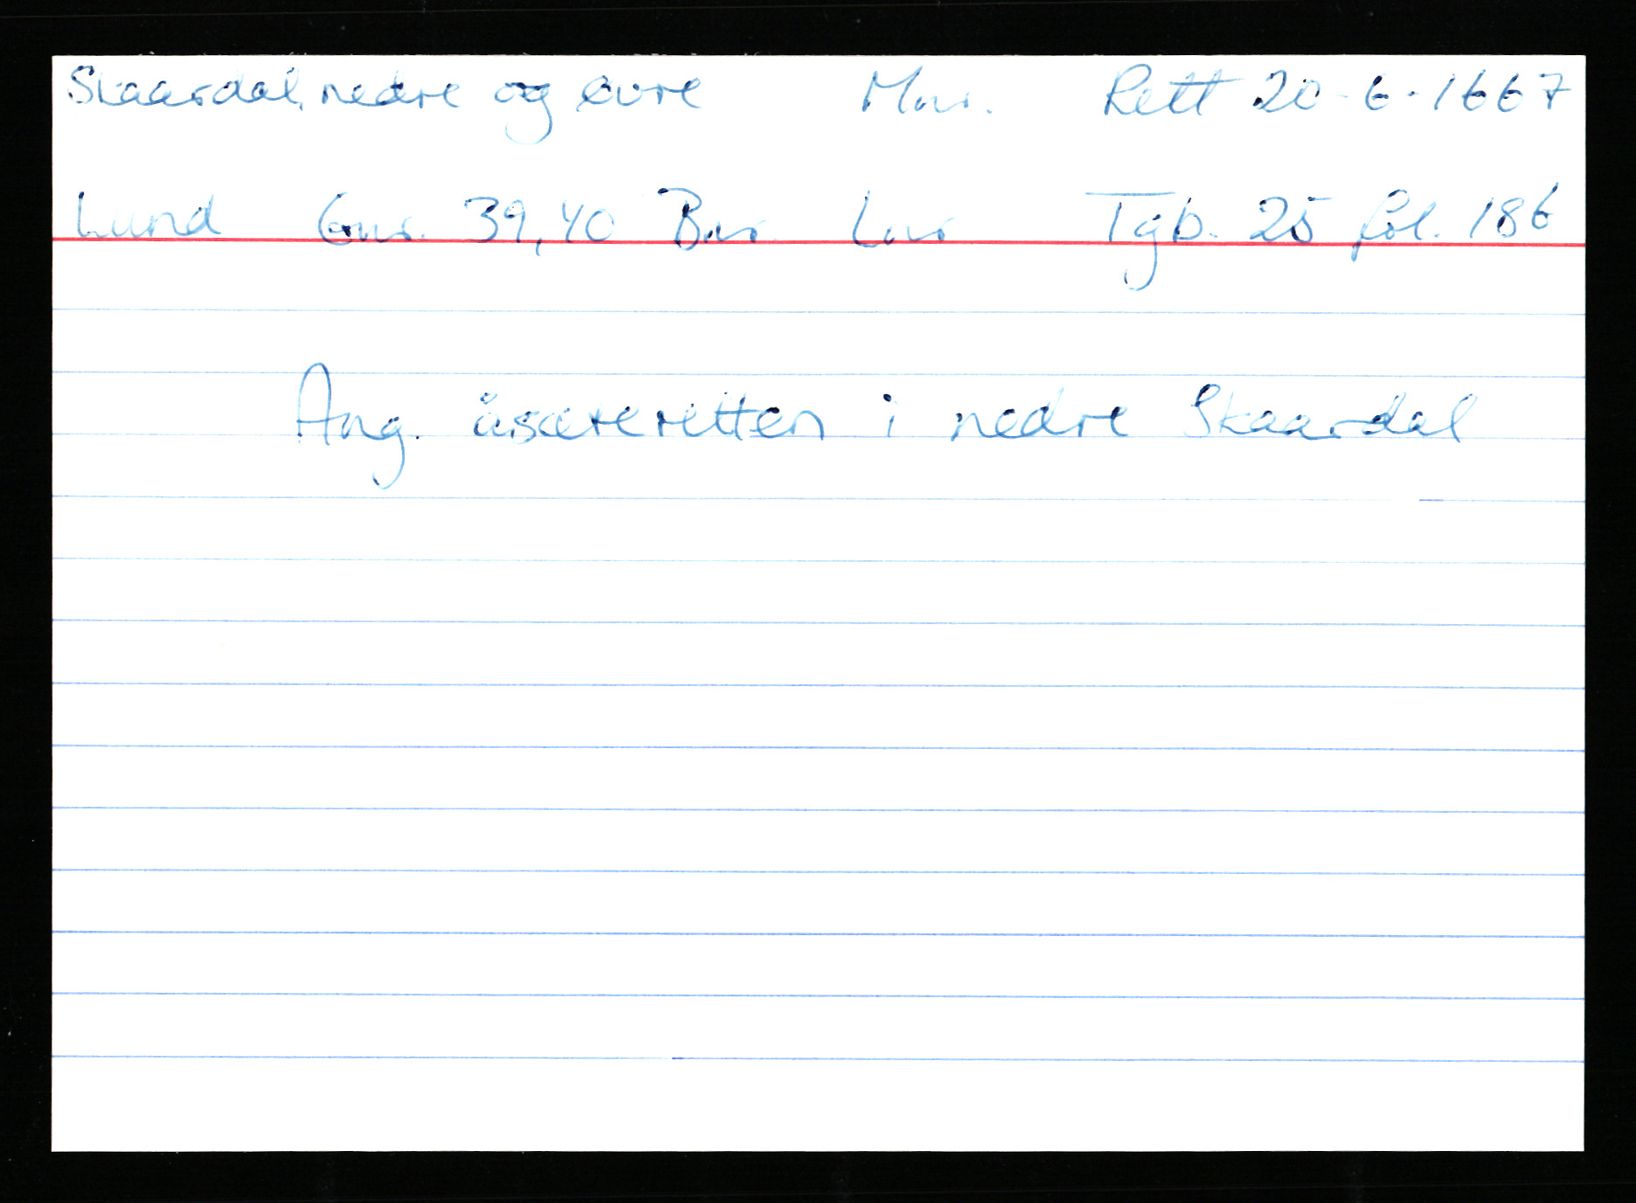 Skaardal, nedre og øvre Mnr. Rett 20-6-1667
Lund Gnr. 39,40 Bnr. Lnr Tgb. 25 fol. 186
Ang. åsæteretten i nedre Skaardal